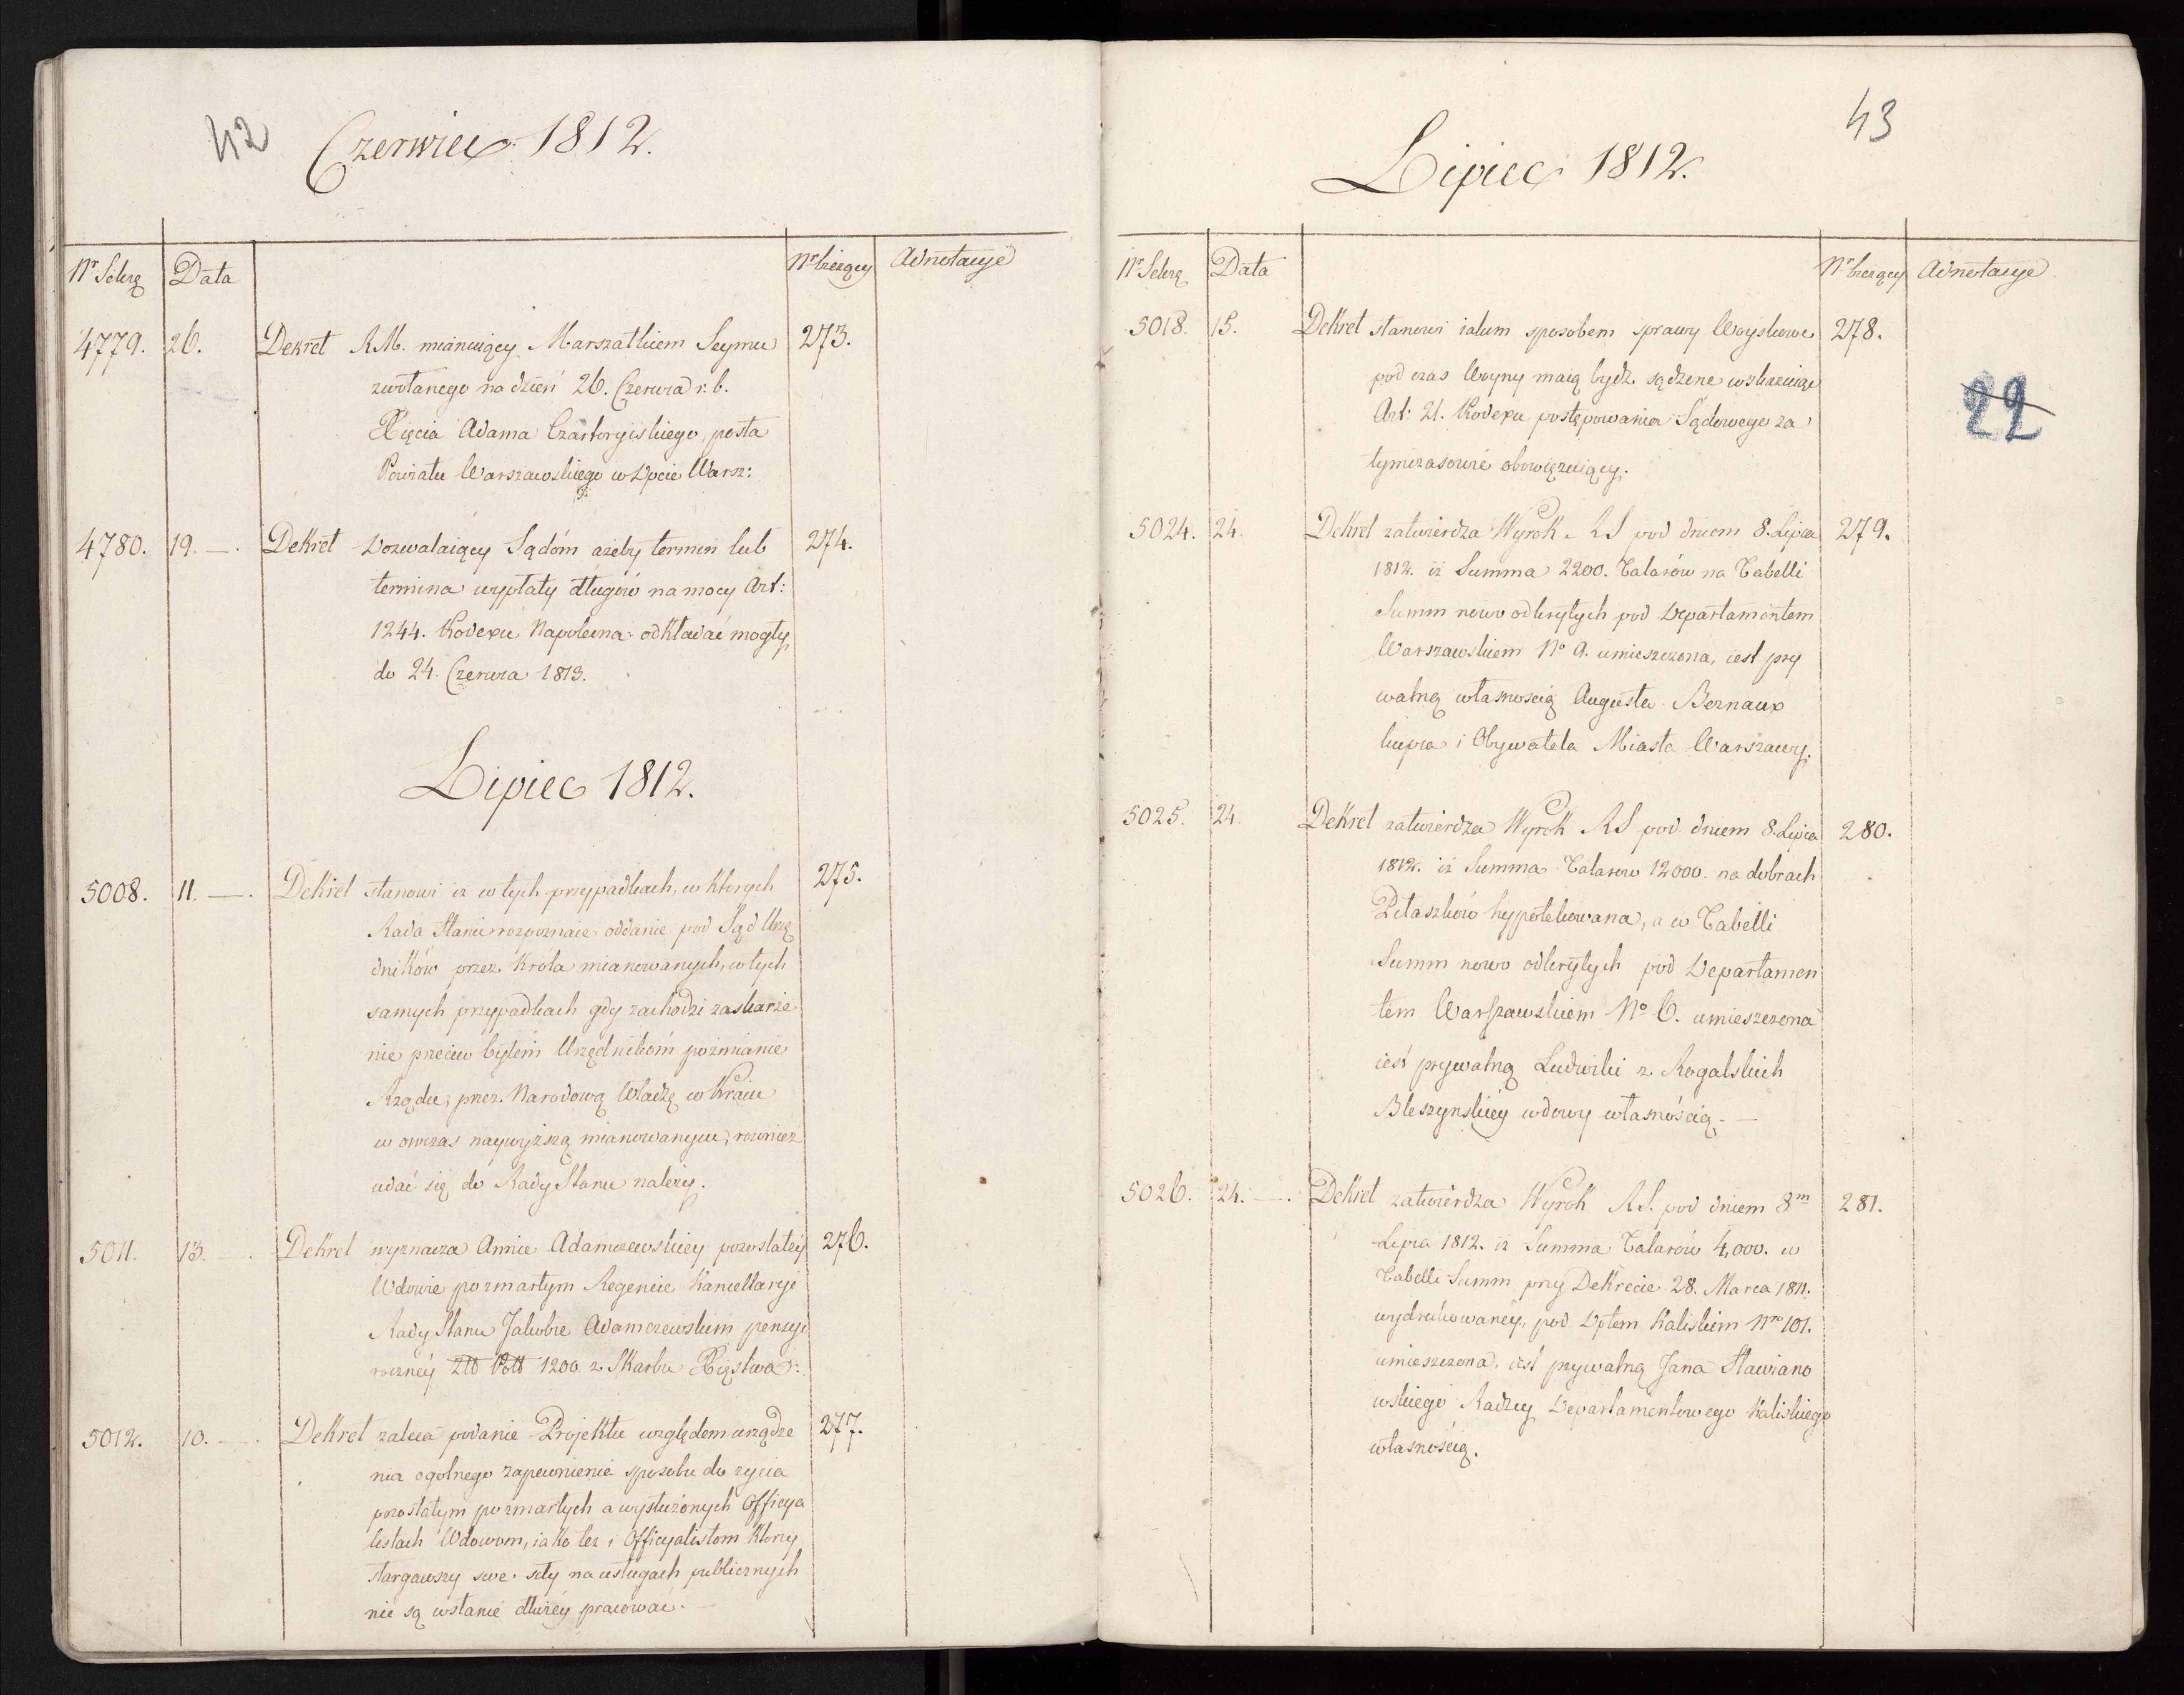 42
Czerwiec 1812.
Nr Sekrę Data Nr bieżący Adnotacye
4779. 26. Dekret R.M. mianuiący Marszałkiem Seymu 273.
zwołanego na dzień 26. Czerwca r. b.
Xięcia Adama Czartoryiskiego, posła
Powiatu Warszawskiego w Dpcie Warsz:
4780. 19. — . Dekret Dozwalaiący Sądóm ażeby termin lub 274.
termina wypłaty długów na mocy Art:
1244. Kodexu Napoleona odkładać mogły
do 24. Czerwca 1813.
Lipiec 1812.
5008. 11. — . Dekret stanowi iż w tych przypadkach, w których 275.
Rada Stanu rozpoznaie oddanie pod Sąd Urzę
dników przez Króla mianowanych, w tych
samych przypadkach gdy zachodzi zaskarże
nie przeciw byłem Urzędnikóm po zmianie
Rządu, przez Narodową Władzę w Kraiu
w owczas naywyższą mianowanym, rownież
udać się do Rady Stanu należy.
5011. 13. — . Dekret wyznacza Annie Adamczewskiey pozostałey 276.
Wdowie po zmarłym Regencie Kancellaryi
Rady Stanu Jakubie Adamczewskim pensyi
roczney Złł Poll 1200. z Skarbu Xięstwa.
5012. 10. — . Dekret zaleca podanie Projektu względem urządze 277.
nia ogolnego zapewnienia sposobu do życia
pozostałym po zmarłych a wysłużonych Officya
listach Wdowom, iako też i Officyalistom którzy
stargawszy swe siły na usługach publicznych
nie są wstanie dłużéy pracować. —
43
Lipiec 1812.
Nr Sekrę Data Nr bieżący Adnotacye
5018. 15. Dekret stanowi iakim sposobem sprawy Woyskowe 278.
pod czas Woyny maią bydź sądzone wskazuiąc
Art: 21. Kodexu postępowania Sądowego za
tymczasowie obowięzuiący.
22
5024. 24. Dekret zatwierdza Wyrok RS pod dniem 8. Lipca 279.
1812. iż Summa 2200. Talarów na Tabelli
Summ nowo odkrytych pod Departamentem
Warszawskiem No 9. umieszczona, iest pry
watną własnoscią Augusta Bernaux
kupca i Obywatela Miasta Warszawy.
5025. 24. Dekret zatwierdza Wyrok RS pod dniem 8. Lipca 280.
1812. iż Summa Talarow 12000. na dobrach
Petaszków hypotekowana, a w Tabelli
Summ nowo odkrytych pod Departamen
tem Warszawskiem No 6. umieszczona
iest prywatną Ludwiki z Rogalskich
Bleszynskiéy wdowy własnością. —
5026. 24. — . Dekret zatwierdza Wyrok RS. pod dniem 8m 281.
Lipca 1812. iż Summa Talarów 4,000. w
Tabelli Summ przy Dekrecie 28. Marca 1811.
wydrukowanéy, pod Dptem Kaliskim Nro 101.
umieszczona, iest prywatną Jana Stawiano
wskiego Radzcy Departamentowego Kaliskiego
własnością.